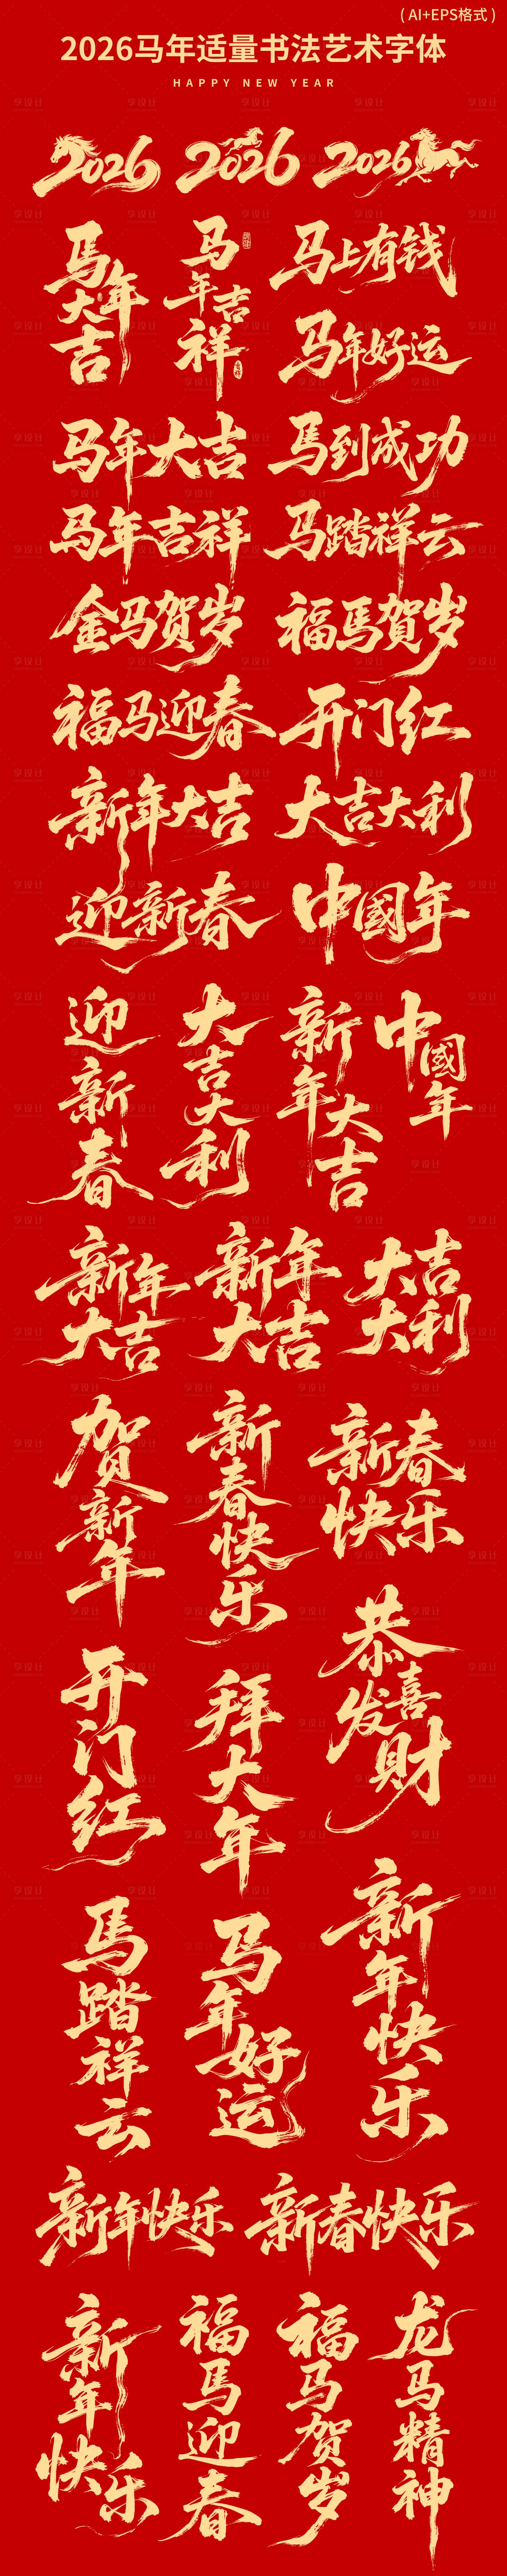 ( AI+EPS格式 )
2026马年适量书法艺术字体
HAPPY NEW YEAR
2026 2026 2026
馬年大吉
马年吉祥
马上有钱
马年好运
马年大吉
馬到成功
马年吉祥
马踏祥云
金马贺岁
福馬賀岁
福马迎春
开门红
新年大吉
大吉大利
迎新春
中國年
迎新春
大吉大利
新年大吉
中國年
新年大吉
新年大吉
大吉大利
贺新年
新春快乐
新春快乐
恭喜发财
开门红
拜大年
馬踏祥云
马年好运
新年快乐
新年快乐
新春快乐
新年快乐
福馬迎春
福马贺岁
龙马精神